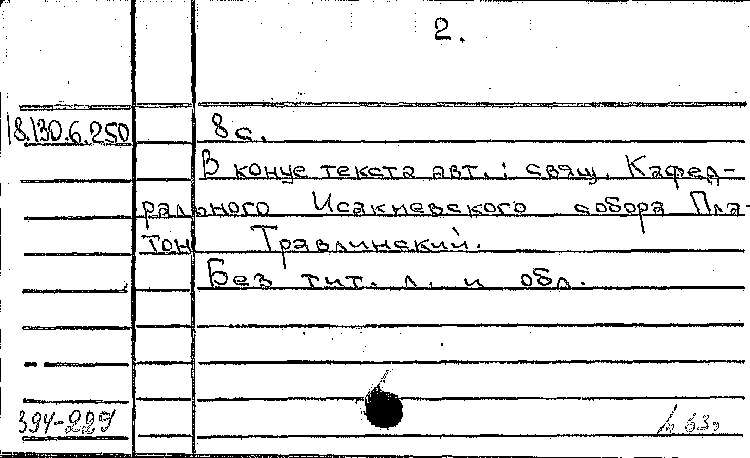 2.
18.130.6.250
8 с.
В конце текста авт.: свящ. Кафед-
рального Исакиевского собора Пла-
тон Травлинский.
Без тит. л. и обл.
394-229